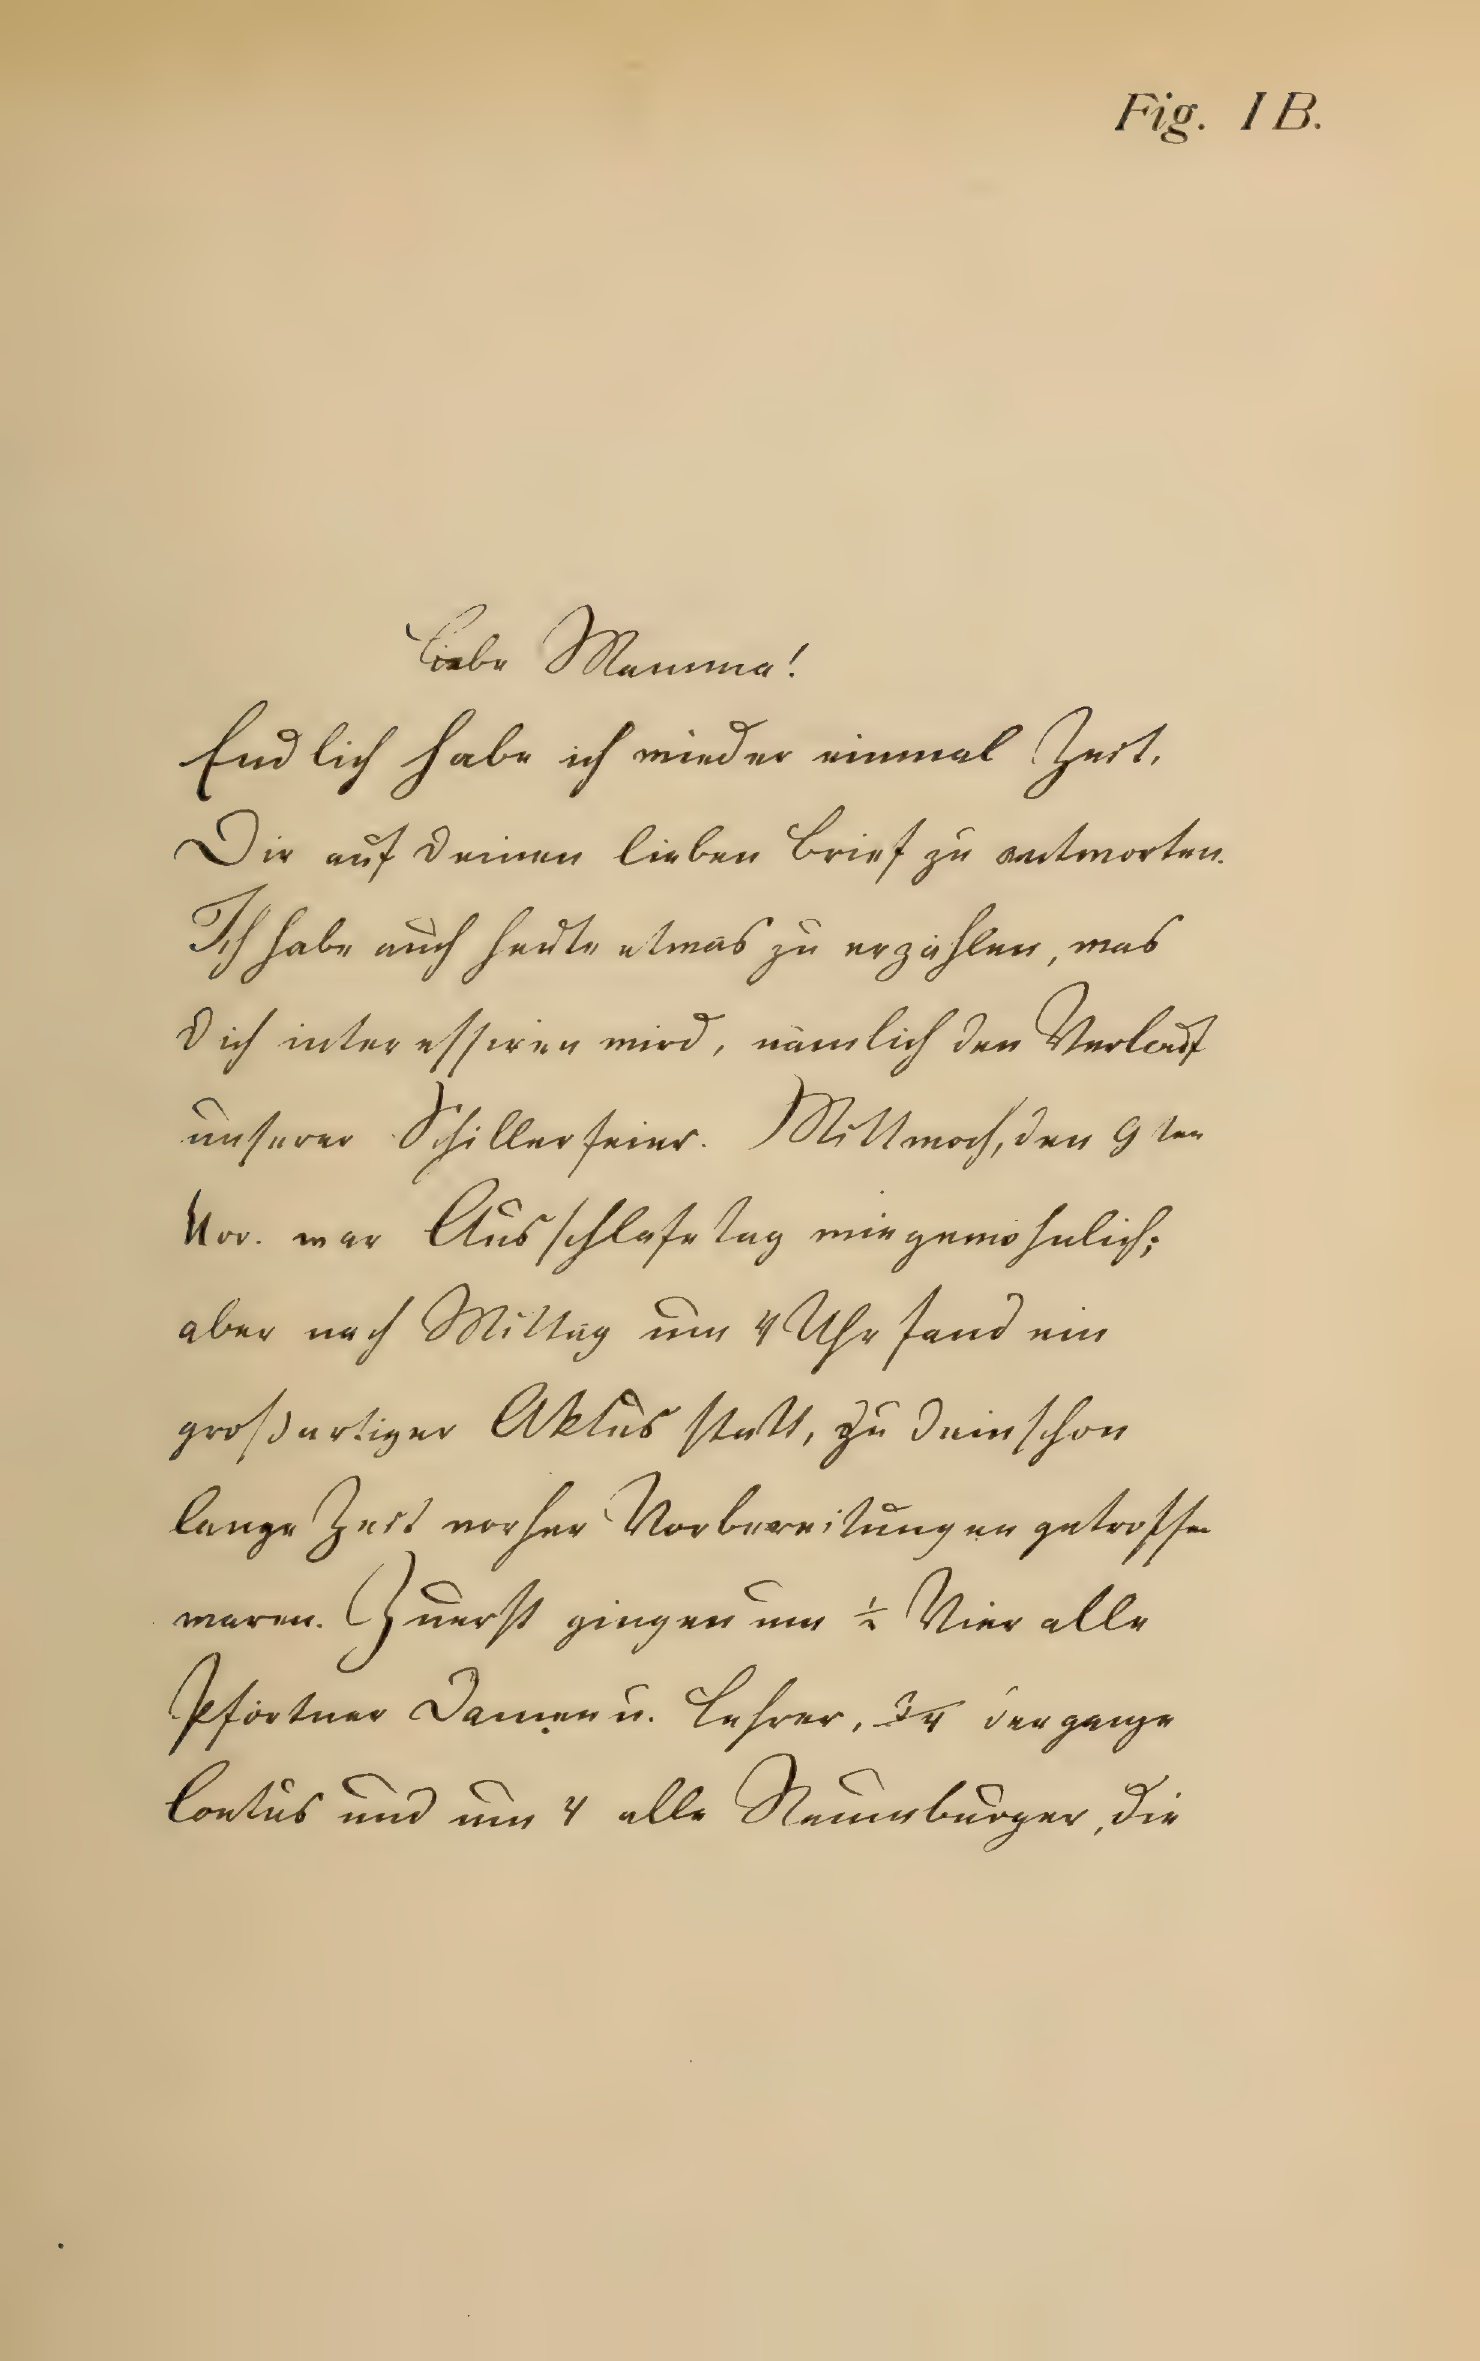 Fig. 1 B.
Liebe Mamma!
Endlich habe ich wieder einmal Zeit,
Dir auf deinen lieben Brief zu antworten.
Ich habe auch heute etwas zu erzählen, was
dich interessiren wird, nämlich den Verlauf
unserer Schillerfeier. Mittwoch, den 9 ten
Nov. war Ausschlafetag wie gewöhnlich;
aber nach Mittag um 4 Uhr fand ein
großartiger Aktus statt, zu dem schon
lange Zeit vorher Vorbereitungen getroffen
waren. Zuerst gingen um ½ Vier alle
Pförtner Damen u. Lehrer, ¾ der ganze
Coetus und um 4 alle Naumburger, die